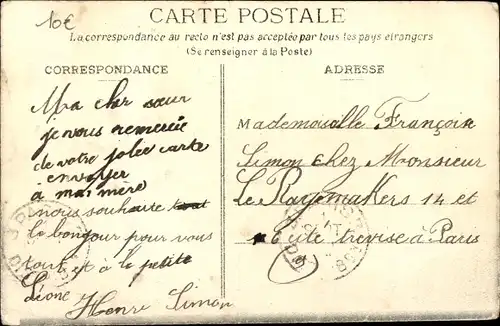 10€
CARTE POSTALE
La correspondance au recto n'est pas acceptée par tous les pays étrangers
(Se renseigner à la Poste)
CORRESPONDANCE
ADRESSE
Ma cher sœur
je vous remercie
de votre jolee carte
envoyer
à ma mère
nous souhaite
le bonjour pour vous
tout et à le petite
Léone Henri Simon
Mademoiselle François
Simon chez Monsieur
Le Ragemakers 14 et
Cité trevise à Paris
9